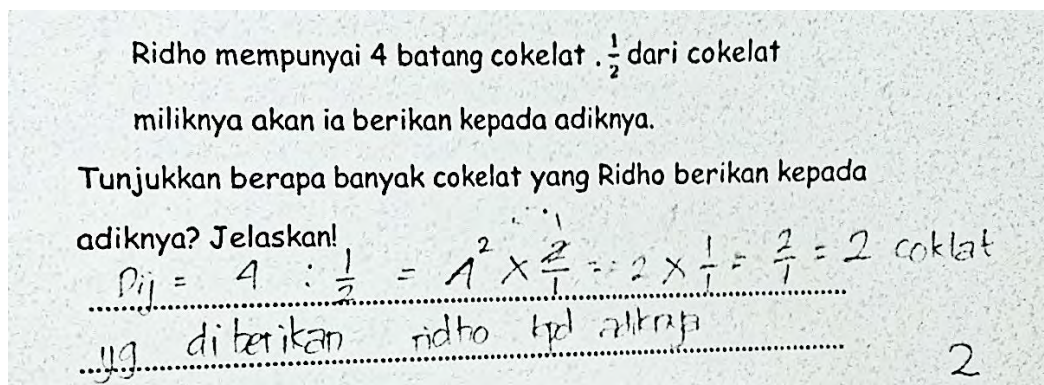 Ridho mempunyai 4 batang cokelat . 1/2 dari cokelat
miliknya akan ia berikan kepada adiknya.
Tunjukkan berapa banyak cokelat yang Ridho berikan kepada
adiknya? Jelaskan!
Dij = 4 : 1/2 = 4² × 2¹/1 = 2 × 1/1 = 2/1 = 2 coklat
yg diberikan ridho kpd adiknya
2